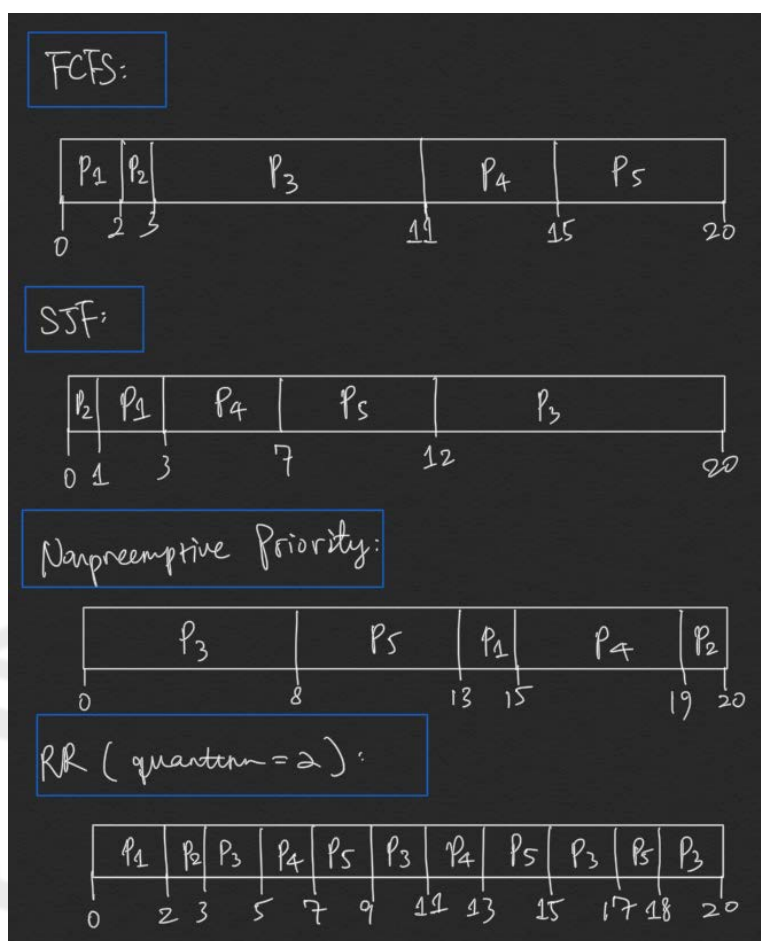 FCFS:
P1 P2 P3 P4 P5
0 2 3 11 15 20
SJF:
P2 P1 P4 P5 P3
0 1 3 7 12 20
Nonpreemptive Priority:
P3 P5 P1 P4 P2
0 8 13 15 19 20
RR ( quantum = 2 ) :
P1 P2 P3 P4 P5 P3 P4 P5 P3 P5 P3
0 2 3 5 7 9 11 13 15 17 18 20